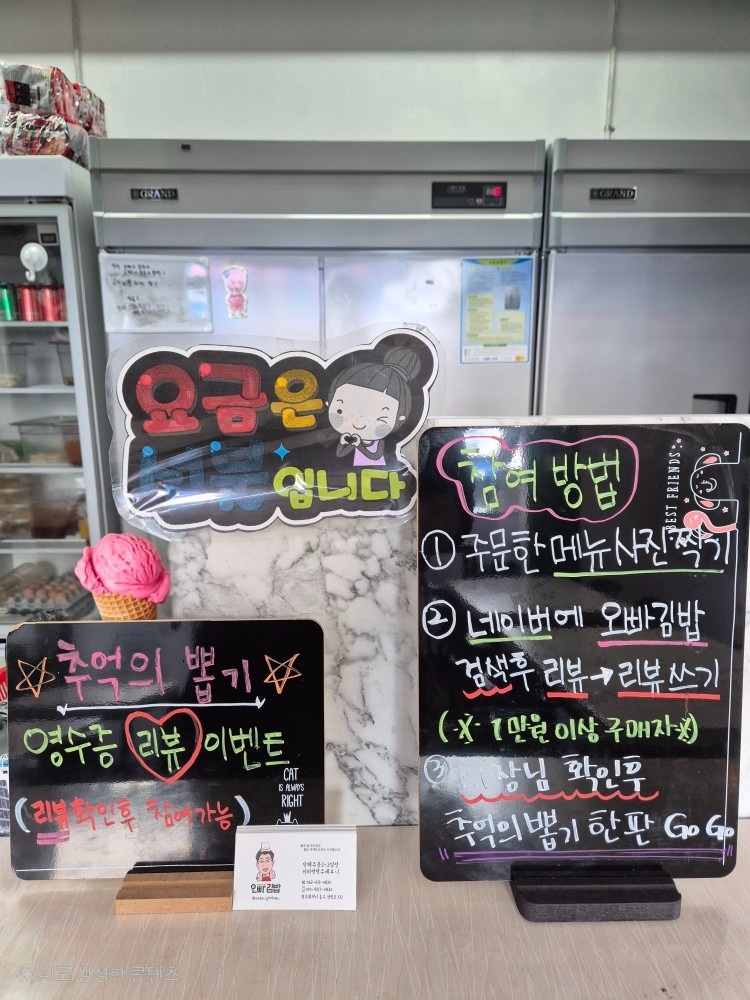 GRAND
GRAND
요금은
리뷰입니다
참여 방법
BEST FRIENDS
① 주문한 메뉴 사진 찍기
② 네이버에 오빠김밥
검색후 리뷰→리뷰쓰기
(※ 1만원 이상 구매자※)
③ 사장님 확인후
추억의 뽑기 한판 GoGo
추억의 뽑기
영수증 리뷰 이벤트
(리뷰확인후 참여가능)
CAT
IS ALWAYS
RIGHT
오빠김밥
AI로 생성한 콘텐츠